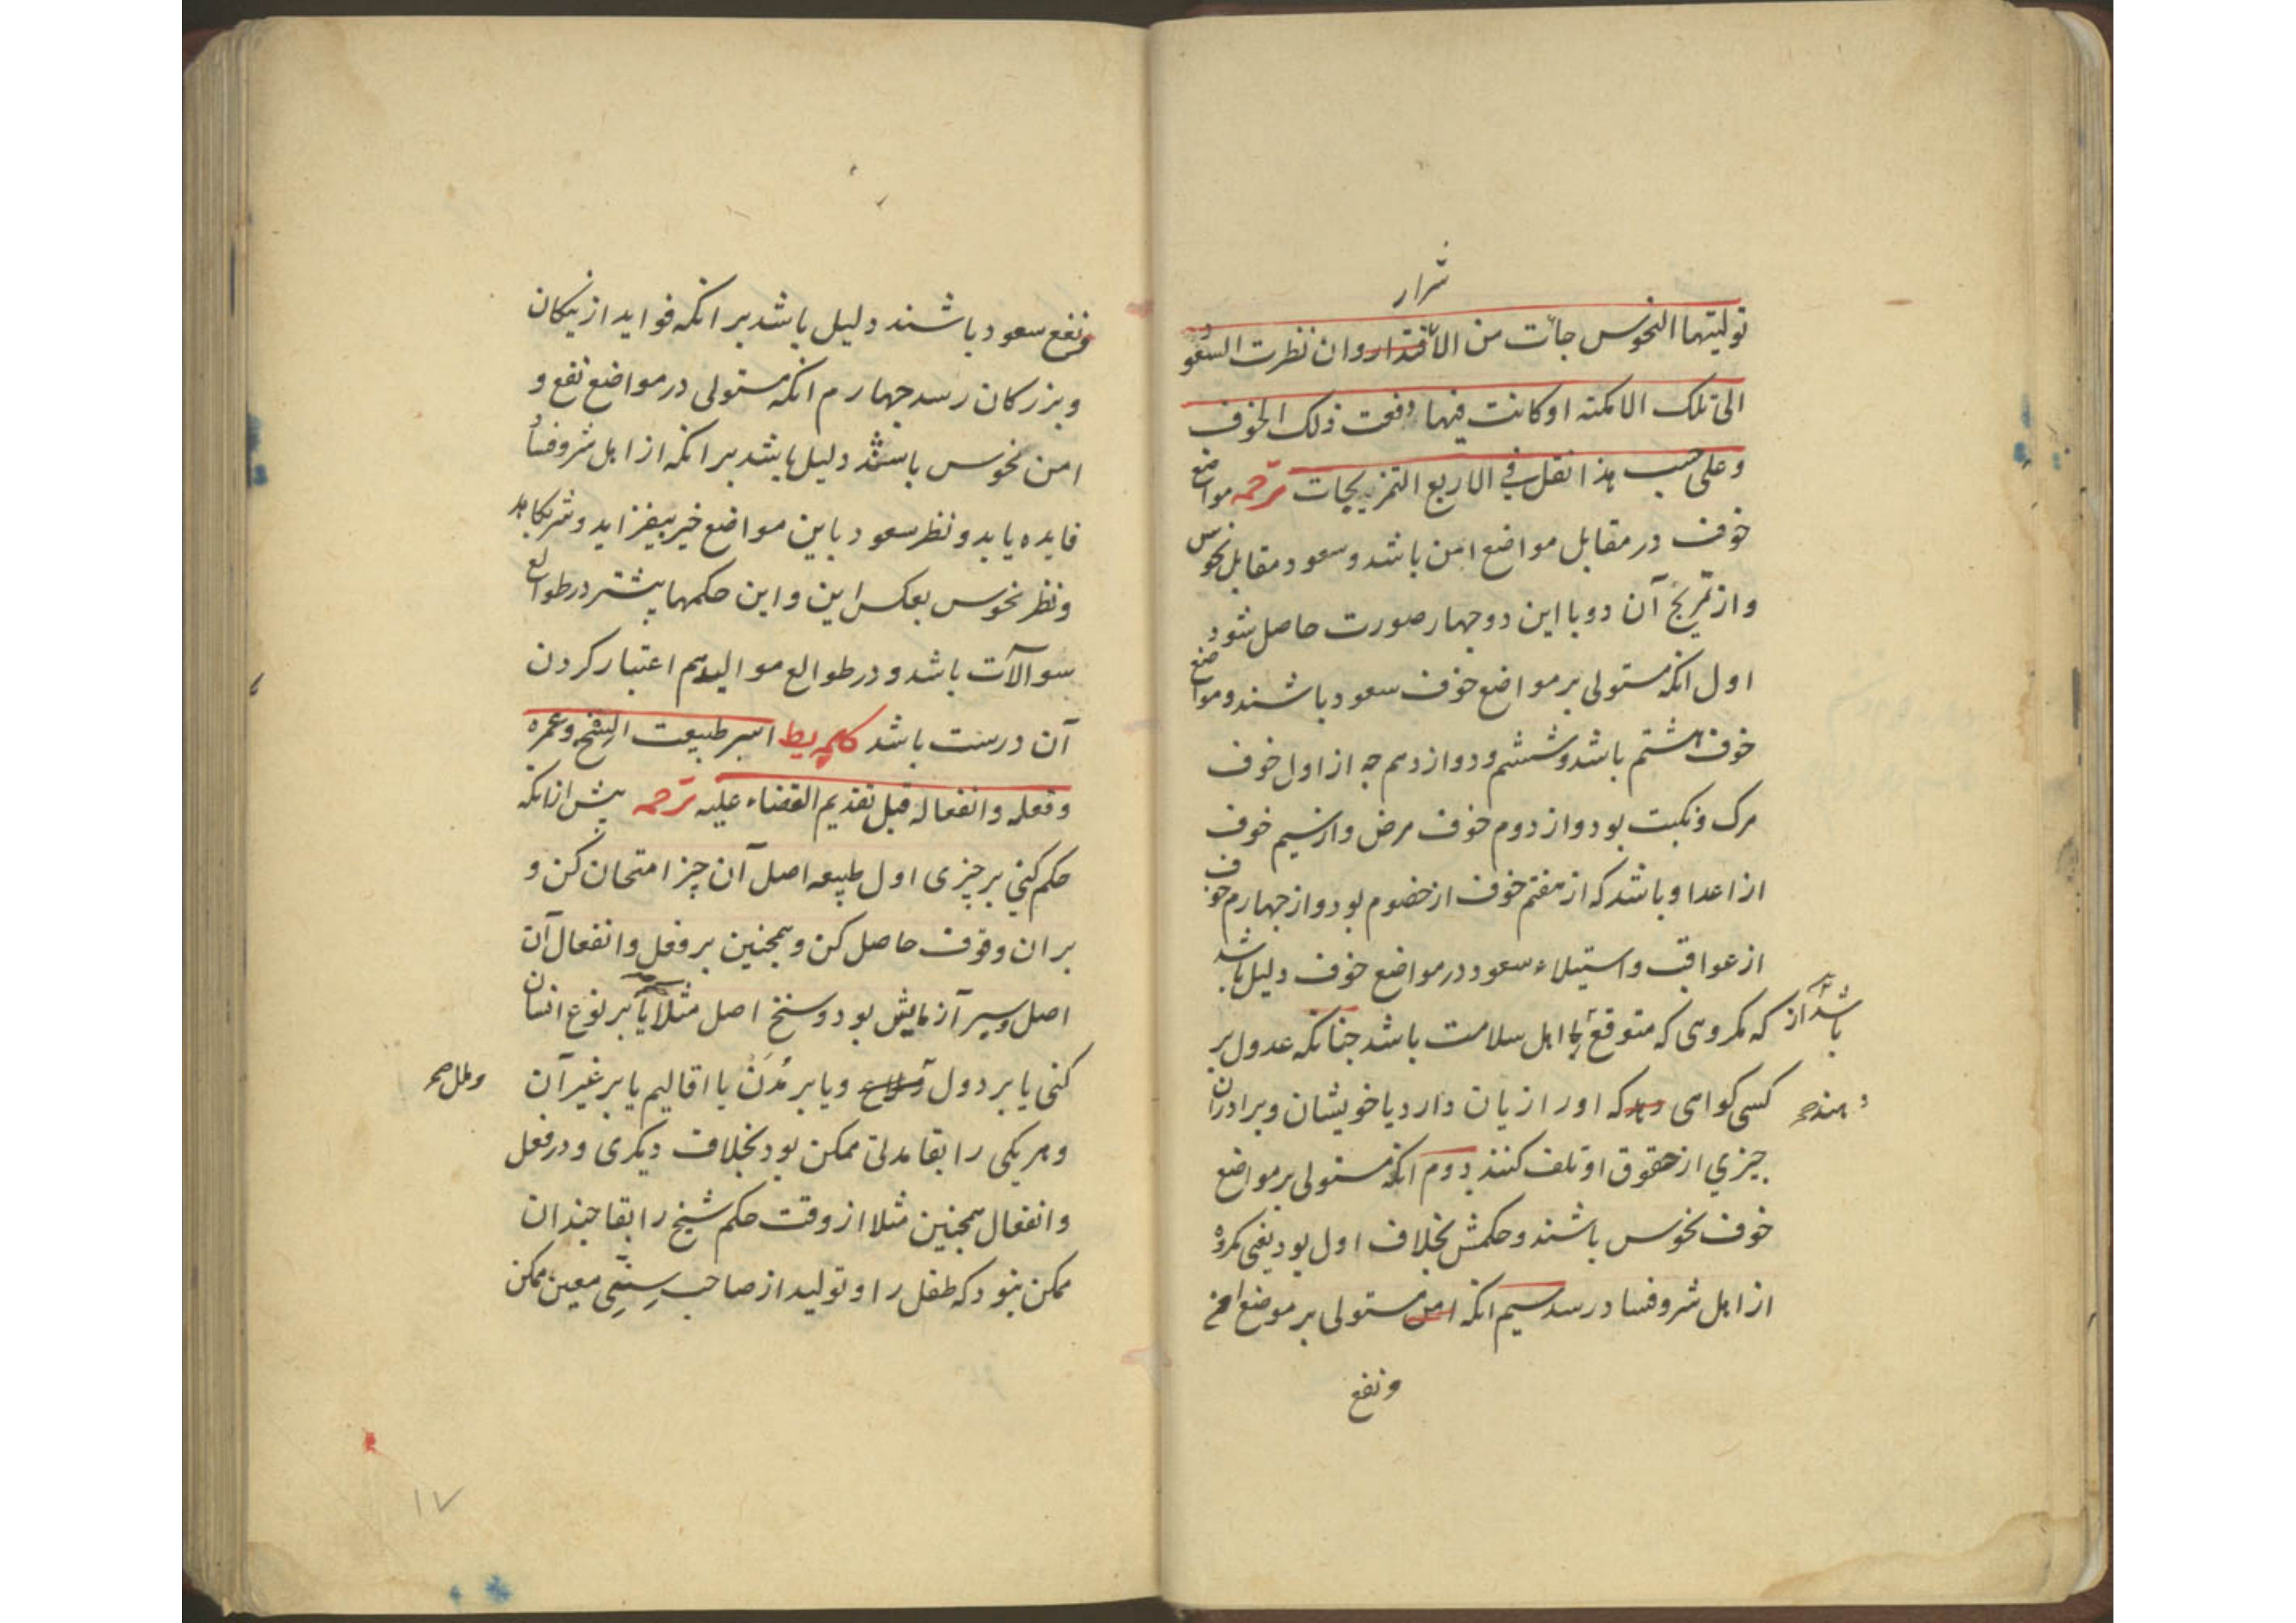 شرار
تولیتها النحوس جائت من الاقتدار وان نظرت السعود
الی تلک الامکنه او کانت فیها دفعت ذلک الخوف
وعلی حسب هذا نقل فی الاربع التمزیجات ترجمه مواضع
خوف در مقابل مواضع امن باشد و سعود مقابل نحوس
و از تمزیج آن دو با این دو چهار صورت حاصل شود
اول انکه مستولی بر مواضع خوف سعود باشند و مواضع
خوف هشتم باشد و ششم و دوازدهم چه از اول خوف
مرک و نکبت بود و از دوم خوف مرض و از سیم خوف
از اعدا و باشد که از هفتم خوف از خصوم بود و از چهارم خوف
از عواقب و استیلاء سعود در مواضع خوف دلیل باشد
که مکروهی که متوقع باشد از اهل سلامت باشد جنانکه عدول بر
کسی کواهی دهد که اورا زیان دارد یا خویشان و برادران
دهند صح
جیزي از حقوق او تلف کنند دوم انکه مستولی بر مواضع
خوف نحوس باشند و حکمش بخلاف اول بود یعنی مکروه
از اهل شر و فساد رسد سیم انکه امن مستولی بر موضع امن
و نفع
و نفع سعود باشند دلیل باشد بر انکه فواید از نیکان
و بزرکان رسد جهارم انکه مستولی در مواضع نفع و
امن نحوس باشند دلیل باشد بر انکه از اهل شر و فساد
فایده یابد و نظر سعود باین مواضع خیر بیفزاید و شر بکاهد
و نظر نحوس بعکس این و این حکمها بیشتر در طوالع
سوالآت باشد و در طوالع موالید هم اعتبار کردن
آن درست باشد کلمه یط اسبر طبیعت السنخ و عمره
و فعله و انفعاله قبل تقدیم القضاء علیه ترجمه پیش از انکه
حکم کنی بر چیزی اول طبیعه اصل آن چیز امتحان کن و
بر ان وقوف حاصل کن و همجنین بر فعل و انفعال آن
اصل و سبر آزمایش بود و سنخ اصل مثلا یا بر نوع انسان
کنی یا بر دول و یا بر مُدَن یا اقالیم یا بر غیر آن
و ملل صح
و هر یکی را بقا مدتی ممکن بود بخلاف دیکری و در فعل
و انفعال همجنین مثلا از وقت حکم شیخ را بقا جندان
ممکن نبود که طفل را و تولید از صاحب سنّی معین ممکن
۱۷